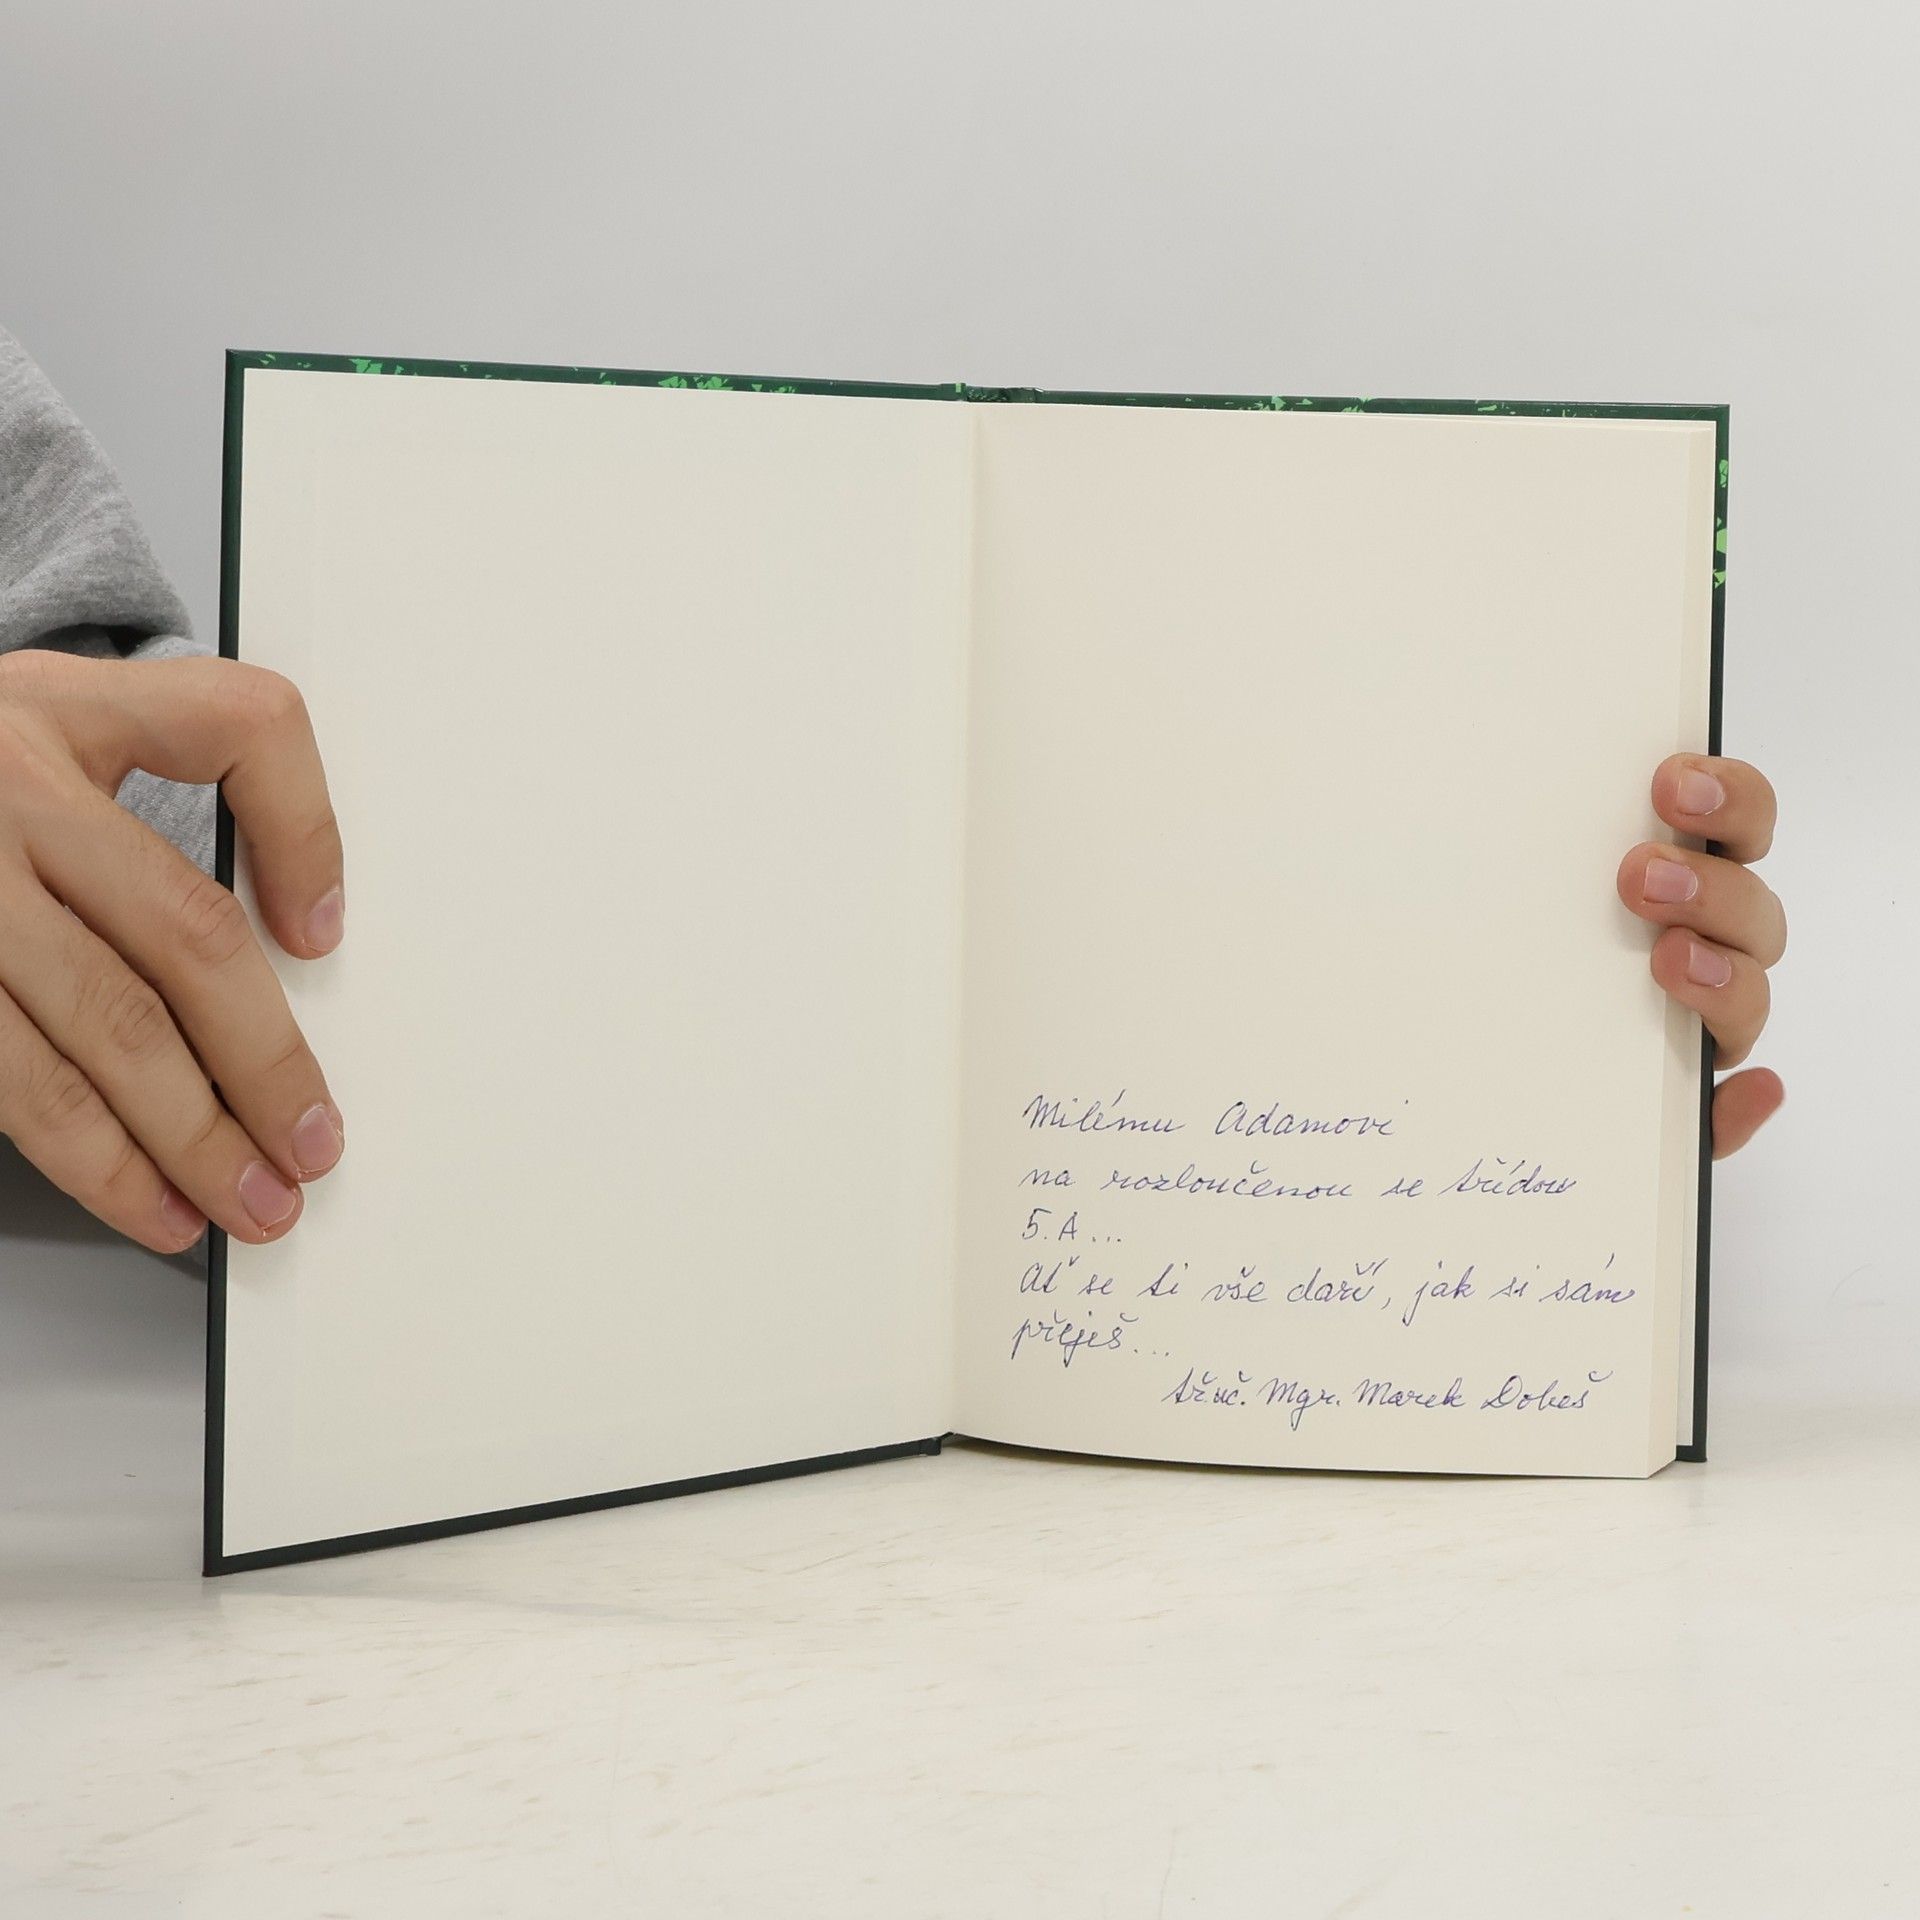 Milému Adamovi
na rozloučenou se třídou
5. A...
Ať se ti vše daří, jak si sám
přeješ...
tř.uč. Mgr. Marek Dobeš